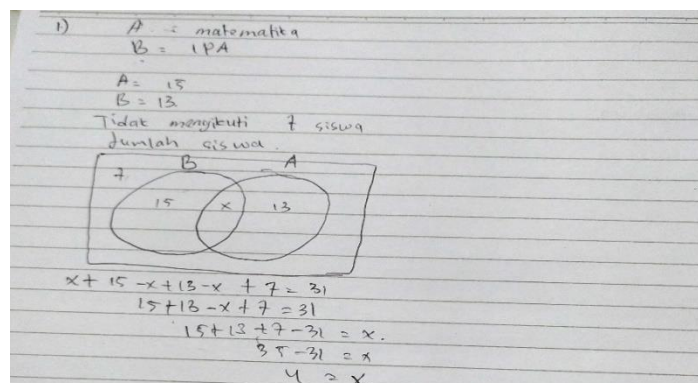 1) A = matematika
B = IPA
A = 15
B = 13
Tidak mengikuti 7 siswa
Jumlah siswa.
B A
7
15 x 13
x + 15 - x + 13 - x + 7 = 31
15 + 13 - x + 7 = 31
15 + 13 + 7 - 31 = x.
35 - 31 = x
4 = x